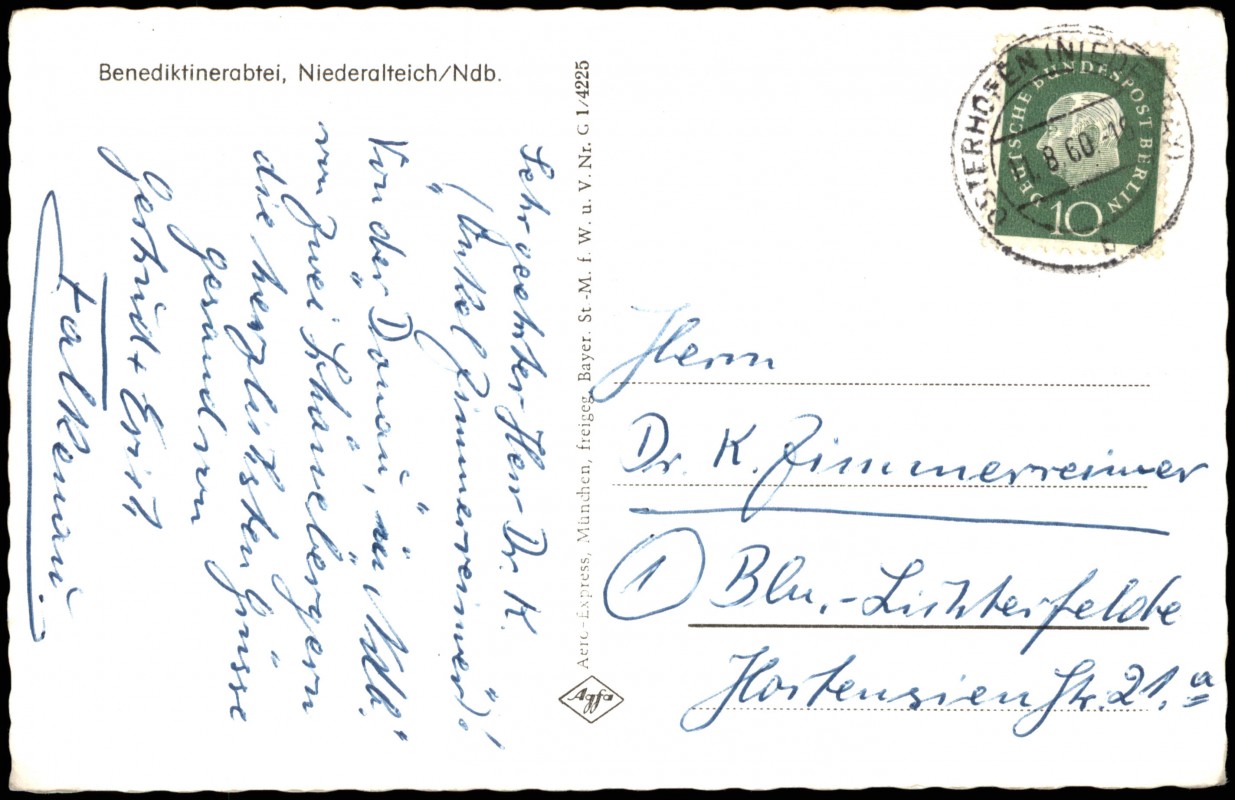 Benediktinerabtei, Niederalteich/Ndb.
Sehr geehrter Herr Dr. K.
"(Onkel Zimmerreimer")!
Von der "Donau", in "Ndb."
von zwei
die herzlichsten Grüsse
gesandt von
Gertrud + Erich
Falkenau.
Aero-Express, München, freigeg. Bayer. St.-M. f. W. u. V. Nr. G 1/4225
Agfa
DEUTSCHE BUNDESPOST BERLIN
10
OSTERHOFEN (NIEDERBAY)
.8.60.-18
b
Herrn
Dr. K. Zimmerreimer
1 Bln.-Lichterfelde
Hortensienstr. 21.a